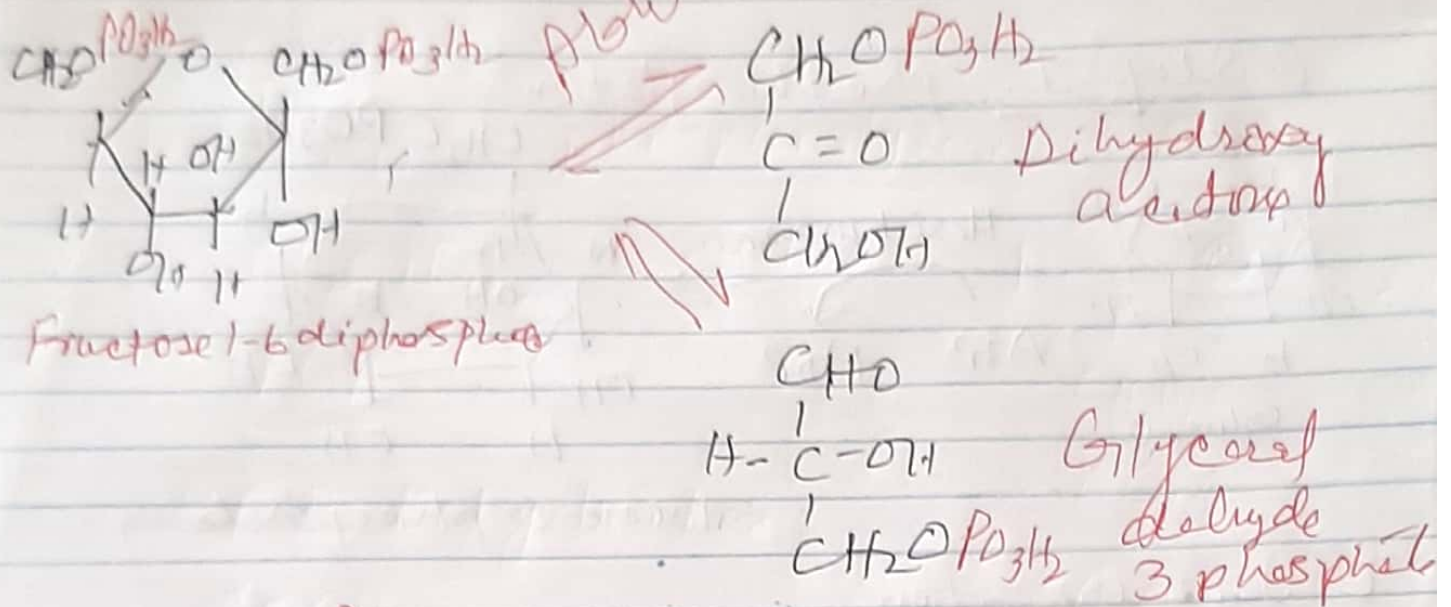 CH2OPO3H2 O CH2OPO3H2
H OH
H OH
OH H
Fructose 1-6 diphosphate
CH2OPO3H2
C=O
CH2OH
Dihydroxy
acetone
CHO
H-C-OH
CH2OPO3H2
Glyceral
dehyde
3 phosphate